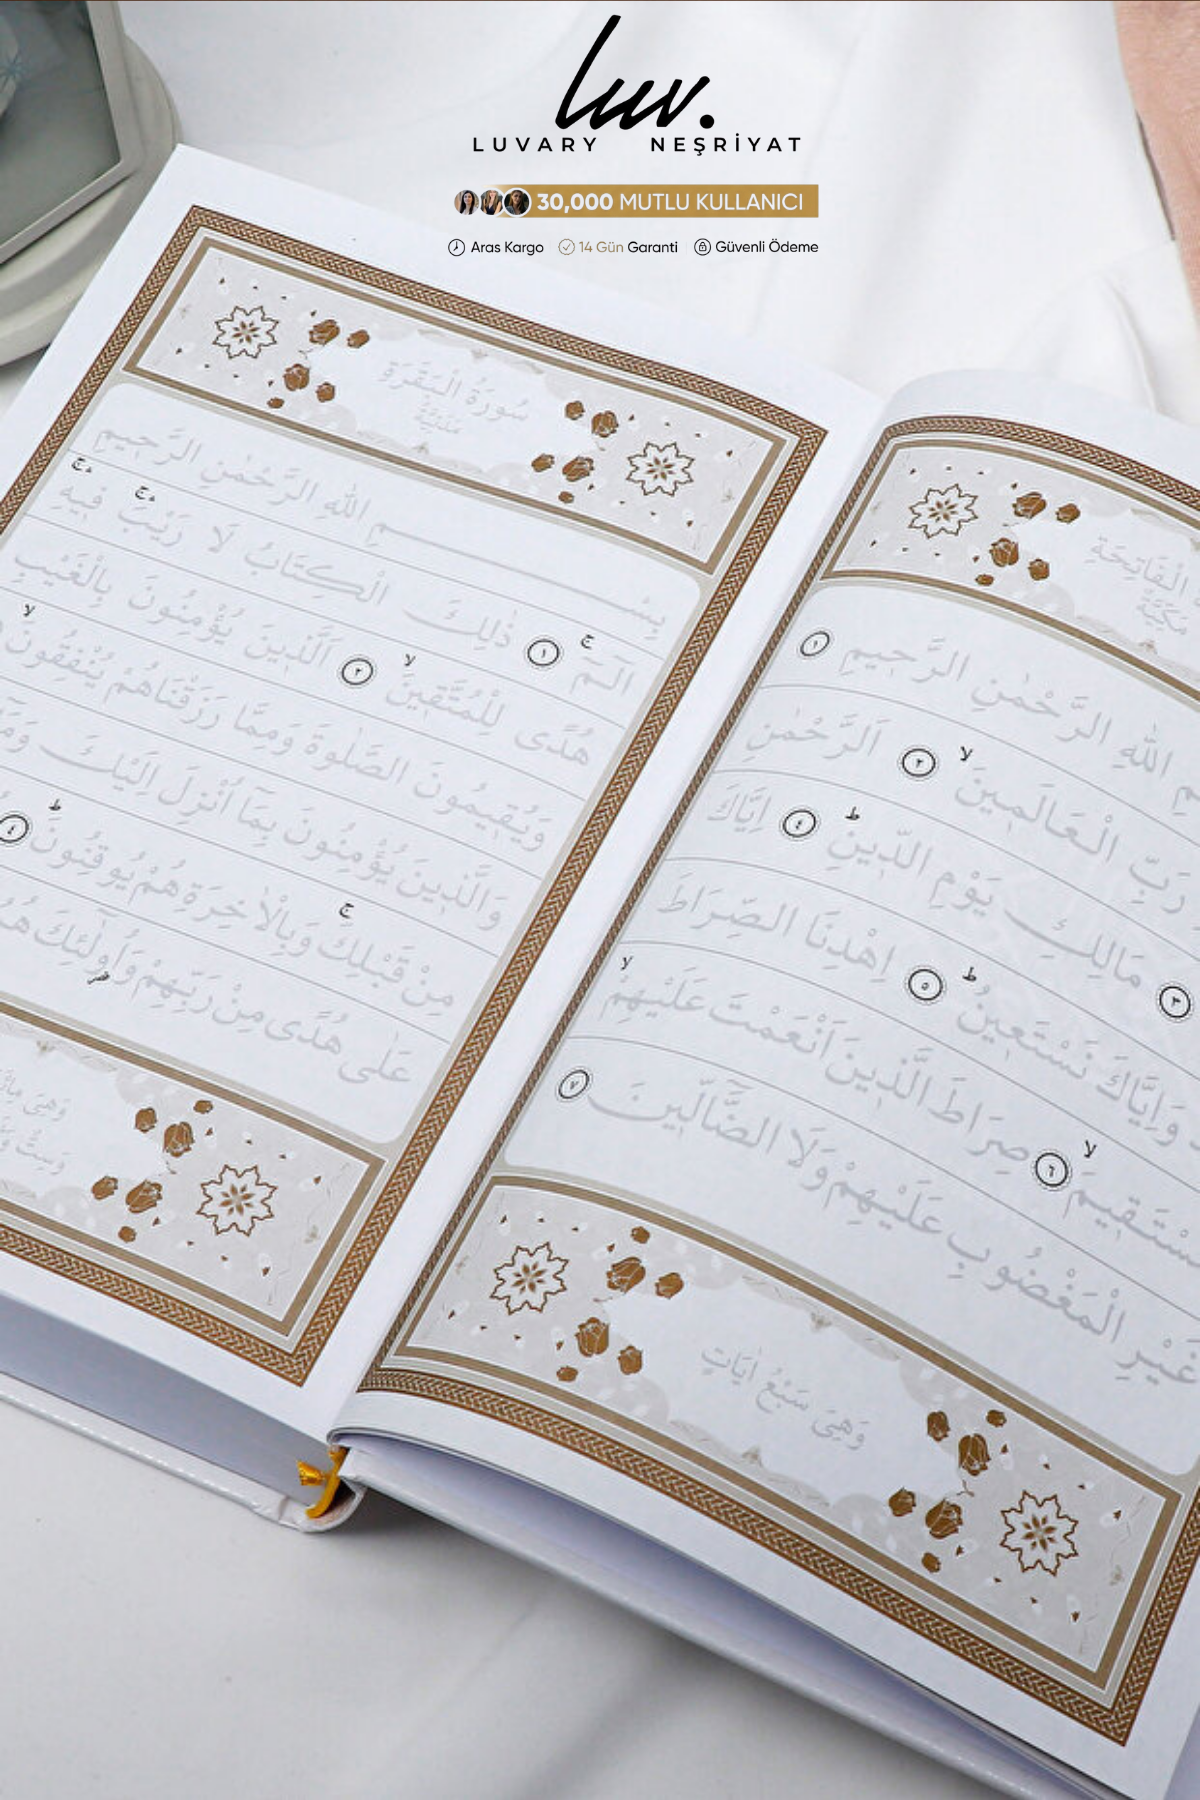 luv.
LUVARY NEŞRİYAT
30,000 MUTLU KULLANICI
Aras Kargo 14 Gün Garanti Güvenli Ödeme
الْفَاتِحَةِ
مَكِّيَّةٌ
اللّٰهِ الرَّحْمٰنِ الرَّحٖيمِ ١
رَبِّ الْعَالَمٖينَ لا ٢ اَلرَّحْمٰنِ
٣ مَالِكِ يَوْمِ الدّٖينِ ط ٤ اِيَّاكَ
وَاِيَّاكَ نَسْتَعٖينُ ط ٥ اِهْدِنَا الصِّرَاطَ
سْتَقٖيمَ لا ٦ صِرَاطَ الَّذٖينَ اَنْعَمْتَ عَلَيْهِمْ لا
غَيْرِ الْمَغْضُوبِ عَلَيْهِمْ وَلَا الضَّٓالّٖينَ ٧
وَهِيَ سَبْعُ اٰيَاتٍ
سُورَةُ الْبَقَرَةِ
مَدَنِيَّةٌ
بِسْمِ اللّٰهِ الرَّحْمٰنِ الرَّحٖيمِ
الٓمٓ ج ١ ذٰلِكَ الْكِتَابُ لَا رَيْبَ ۛج فٖيهِ ۛج
هُدًى لِلْمُتَّقٖينَ لا ٢ اَلَّذٖينَ يُؤْمِنُونَ بِالْغَيْبِ
وَيُقٖيمُونَ الصَّلٰوةَ وَمِمَّا رَزَقْنَاهُمْ يُنْفِقُونَ لا
وَالَّذٖينَ يُؤْمِنُونَ بِمَٓا اُنْزِلَ اِلَيْكَ وَمَٓا
مِنْ قَبْلِكَ ج وَبِالْاٰخِرَةِ هُمْ يُوقِنُونَ ط ٤
عَلٰى هُدًى مِنْ رَبِّهِمْ وَاُولٰٓئِكَ
وَهِيَ